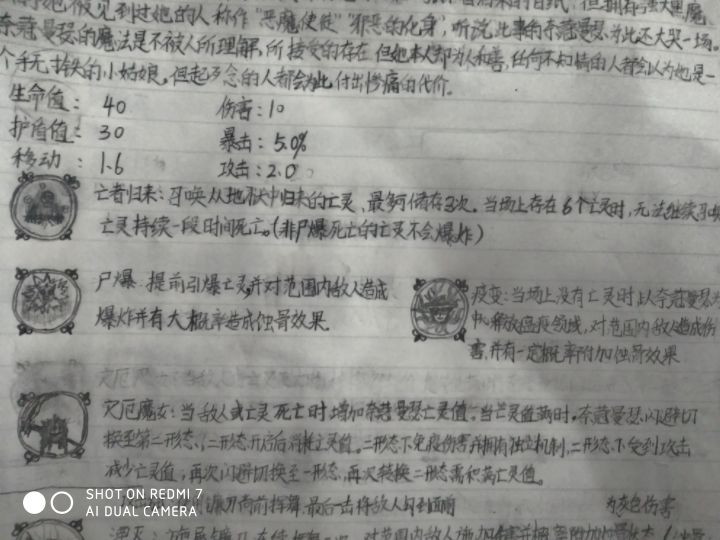 她被见到过她的人称作"恶魔使徒""邪恶的化身",听说此事的奈蔻曼瑟为此还大哭一场。
奈蔻曼瑟的魔法是不被人所理解,所接受的存在,但她本人却为人和善,任何不知情的人都会以为她是一
个手无寸铁的小姑娘,但起歹念的人都会为此付出惨痛的代价。
生命值: 40 伤害: 10
护盾值: 30 暴击: 5.0%
移动: 1.6 攻击: 2.0
亡者归来:召唤从地狱中归来的亡灵,最多可储存3次。当场上存在6个亡灵时,无法继续召唤
亡灵持续一段时间死亡。(非尸爆死亡的亡灵不会爆炸)
尸爆:提前引爆亡灵,并对范围内敌人造成
爆炸并有大概率造成蚀骨效果。
疫变:当场上没有亡灵时,以奈蔻曼瑟为
中心释放瘟疫领域,对范围内敌人造成伤
害,并有一定概率附加蚀骨效果
灾厄魔女:当敌人或亡灵死亡时,增加奈蔻曼瑟亡灵值。当亡灵值满时,奈蔻曼瑟闪避切
换至第二形态,二形态开启后消耗亡灵值。二形态下免疫伤害并拥有独立机制,二形态下受到攻击
减少亡灵值,再次闪避切换至一形态,再次转换二形态需积满亡灵值。
镰刀向前挥舞,最后击将敌人勾到面前 为灰色伤害
SHOT ON REDMI 7
AI DUAL CAMERA
对范围内敌人施加